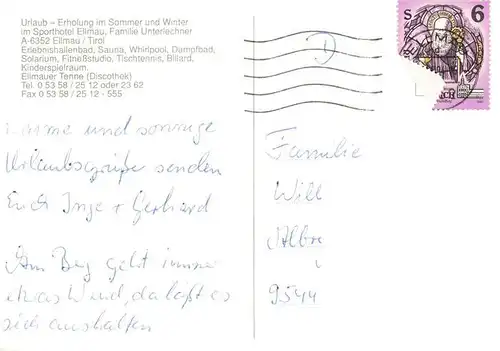 Urlaub – Erholung im Sommer und Winter
im Sporthotel Ellmau, Familie Unterlechner
A-6352 Ellmau / Tirol
Erlebnishallenbad, Sauna, Whirlpool, Dampfbad,
Solarium, Fitneßstudio, Tischtennis, Billard,
Kinderspielraum,
Ellmauer Tenne (Discothek)
Tel. 0 53 58 / 25 12 oder 23 62
Fax 0 53 58 / 25 12 - 555
warme und sonnige
Urlaubsgrüße senden
Euch Inge + Gerhard
Am Berg geht immer
etwas Wind, da läßt es
sich aushalten
D
S 6
Familie
Will
9544